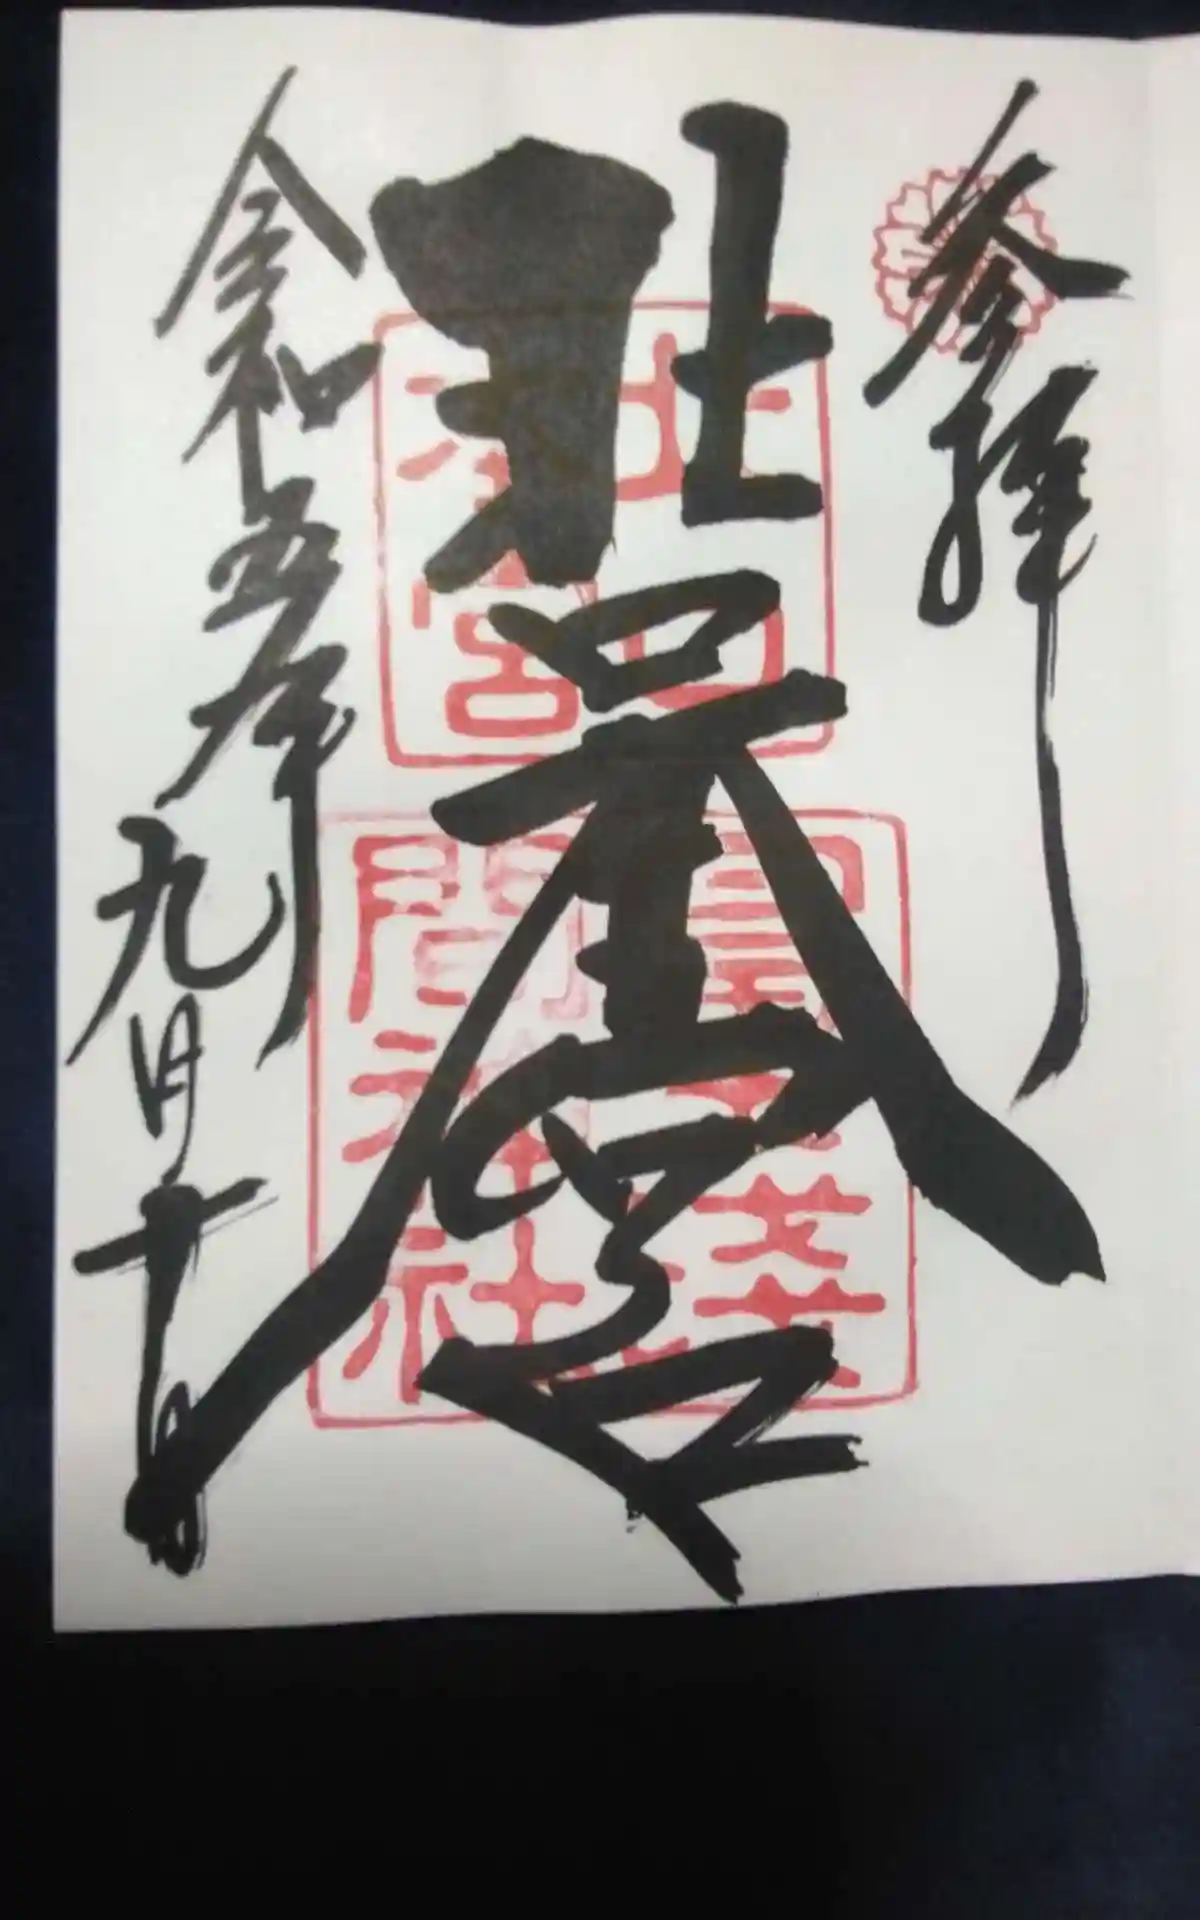 参拝
北口本宮
北口
本宮
冨士淺
間神社
令和五年九月十日